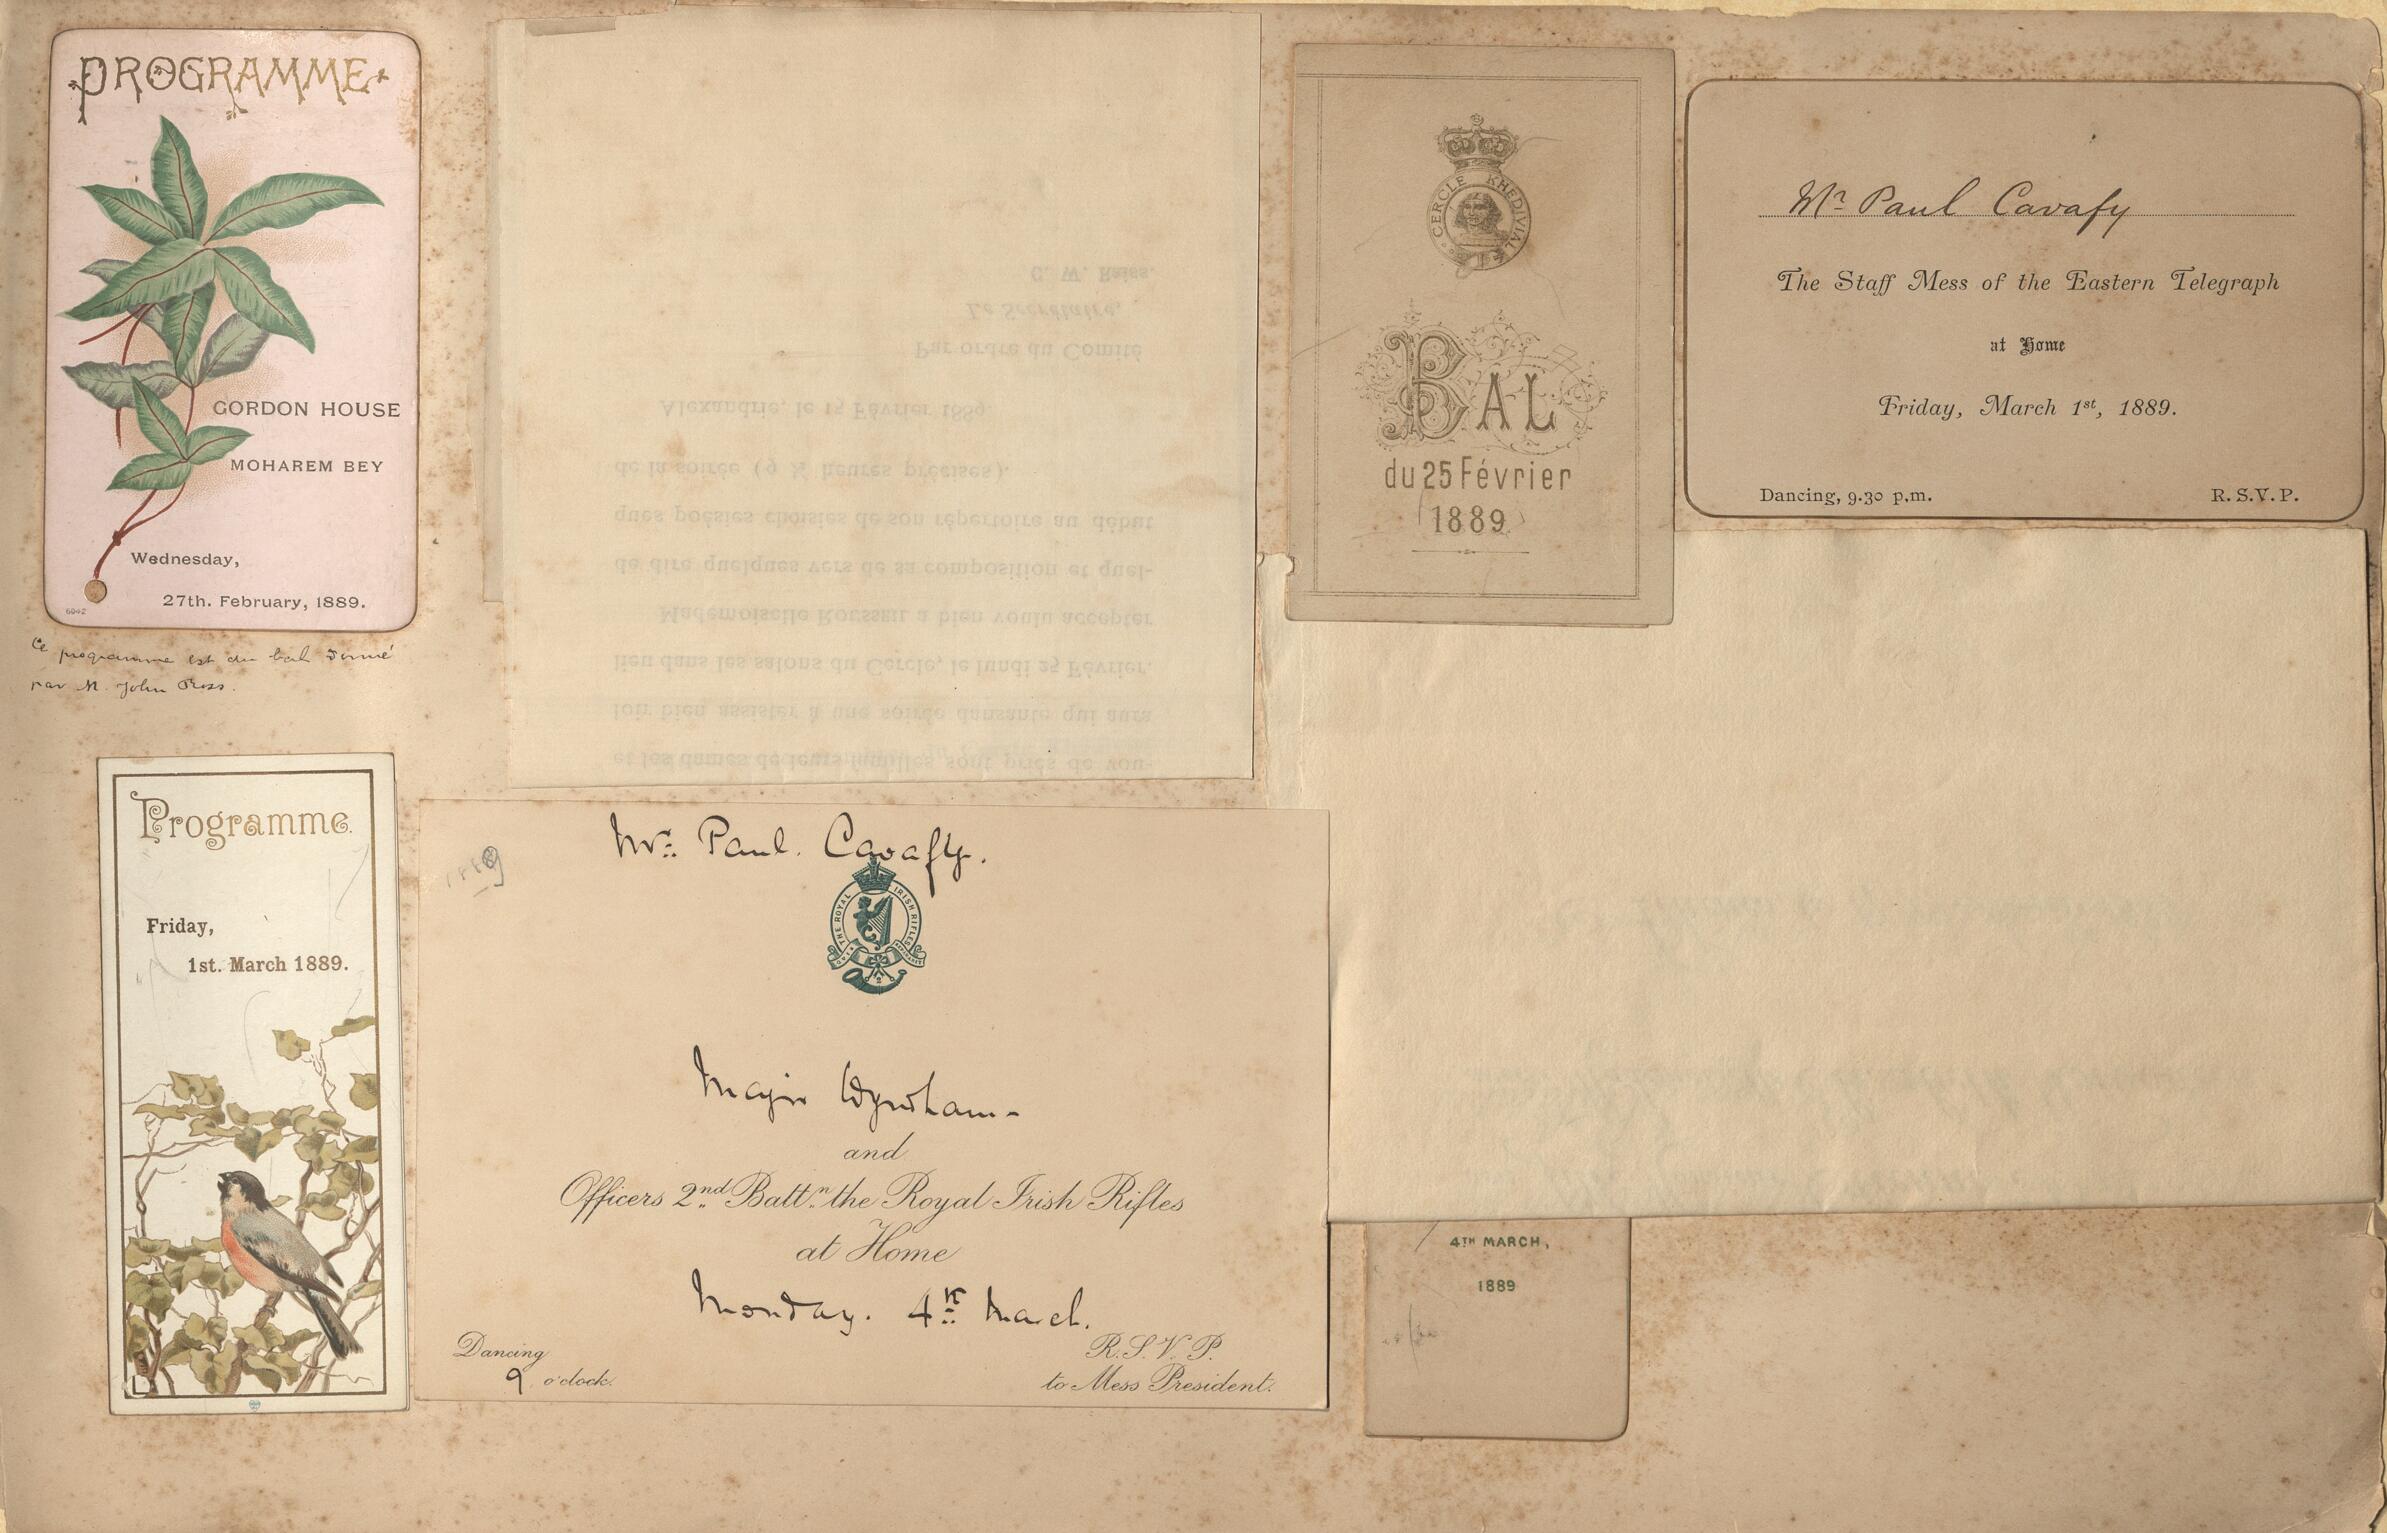 PROGRAMME
GORDON HOUSE
MOHAREM BEY
Wednesday,
27th. February, 1889.
6042
Ce programme est du bal donné
par M. John Ross.
C. W. Reiss.
Le Secrétaire,
Par ordre du Comité
Alexandrie, le 15 Février 1889.
de la soirée (9 ½ heures précises).
ques poésies choisies de son répertoire au début
de dire quelques vers de sa composition et quel-
Mademoiselle ROUSSEIL a bien voulu accepter
lieu dans les salons du Cercle, le lundi 25 Février.
loir bien assister à une soirée dansante qui aura
et les dames de leurs familles, sont priés de vou-
CERCLE KHEDIVIAL
BAL
du 25 Février
1889
Mr Paul Cavafy
The Staff Mess of the Eastern Telegraph
at Home
Friday, March 1st, 1889.
Dancing, 9.30 p.m.
R.S.V.P.
Programme.
Friday,
1st. March 1889.
1889
Mr: Paul. Cavafy.
THE ROYAL IRISH RIFLES
Major Wyndham-
and
Officers 2nd Battn the Royal Irish Rifles
at Home
Monday. 4th March.
Dancing
9 o'clock.
R.S.V.P.
to Mess President.
4TH MARCH,
1889